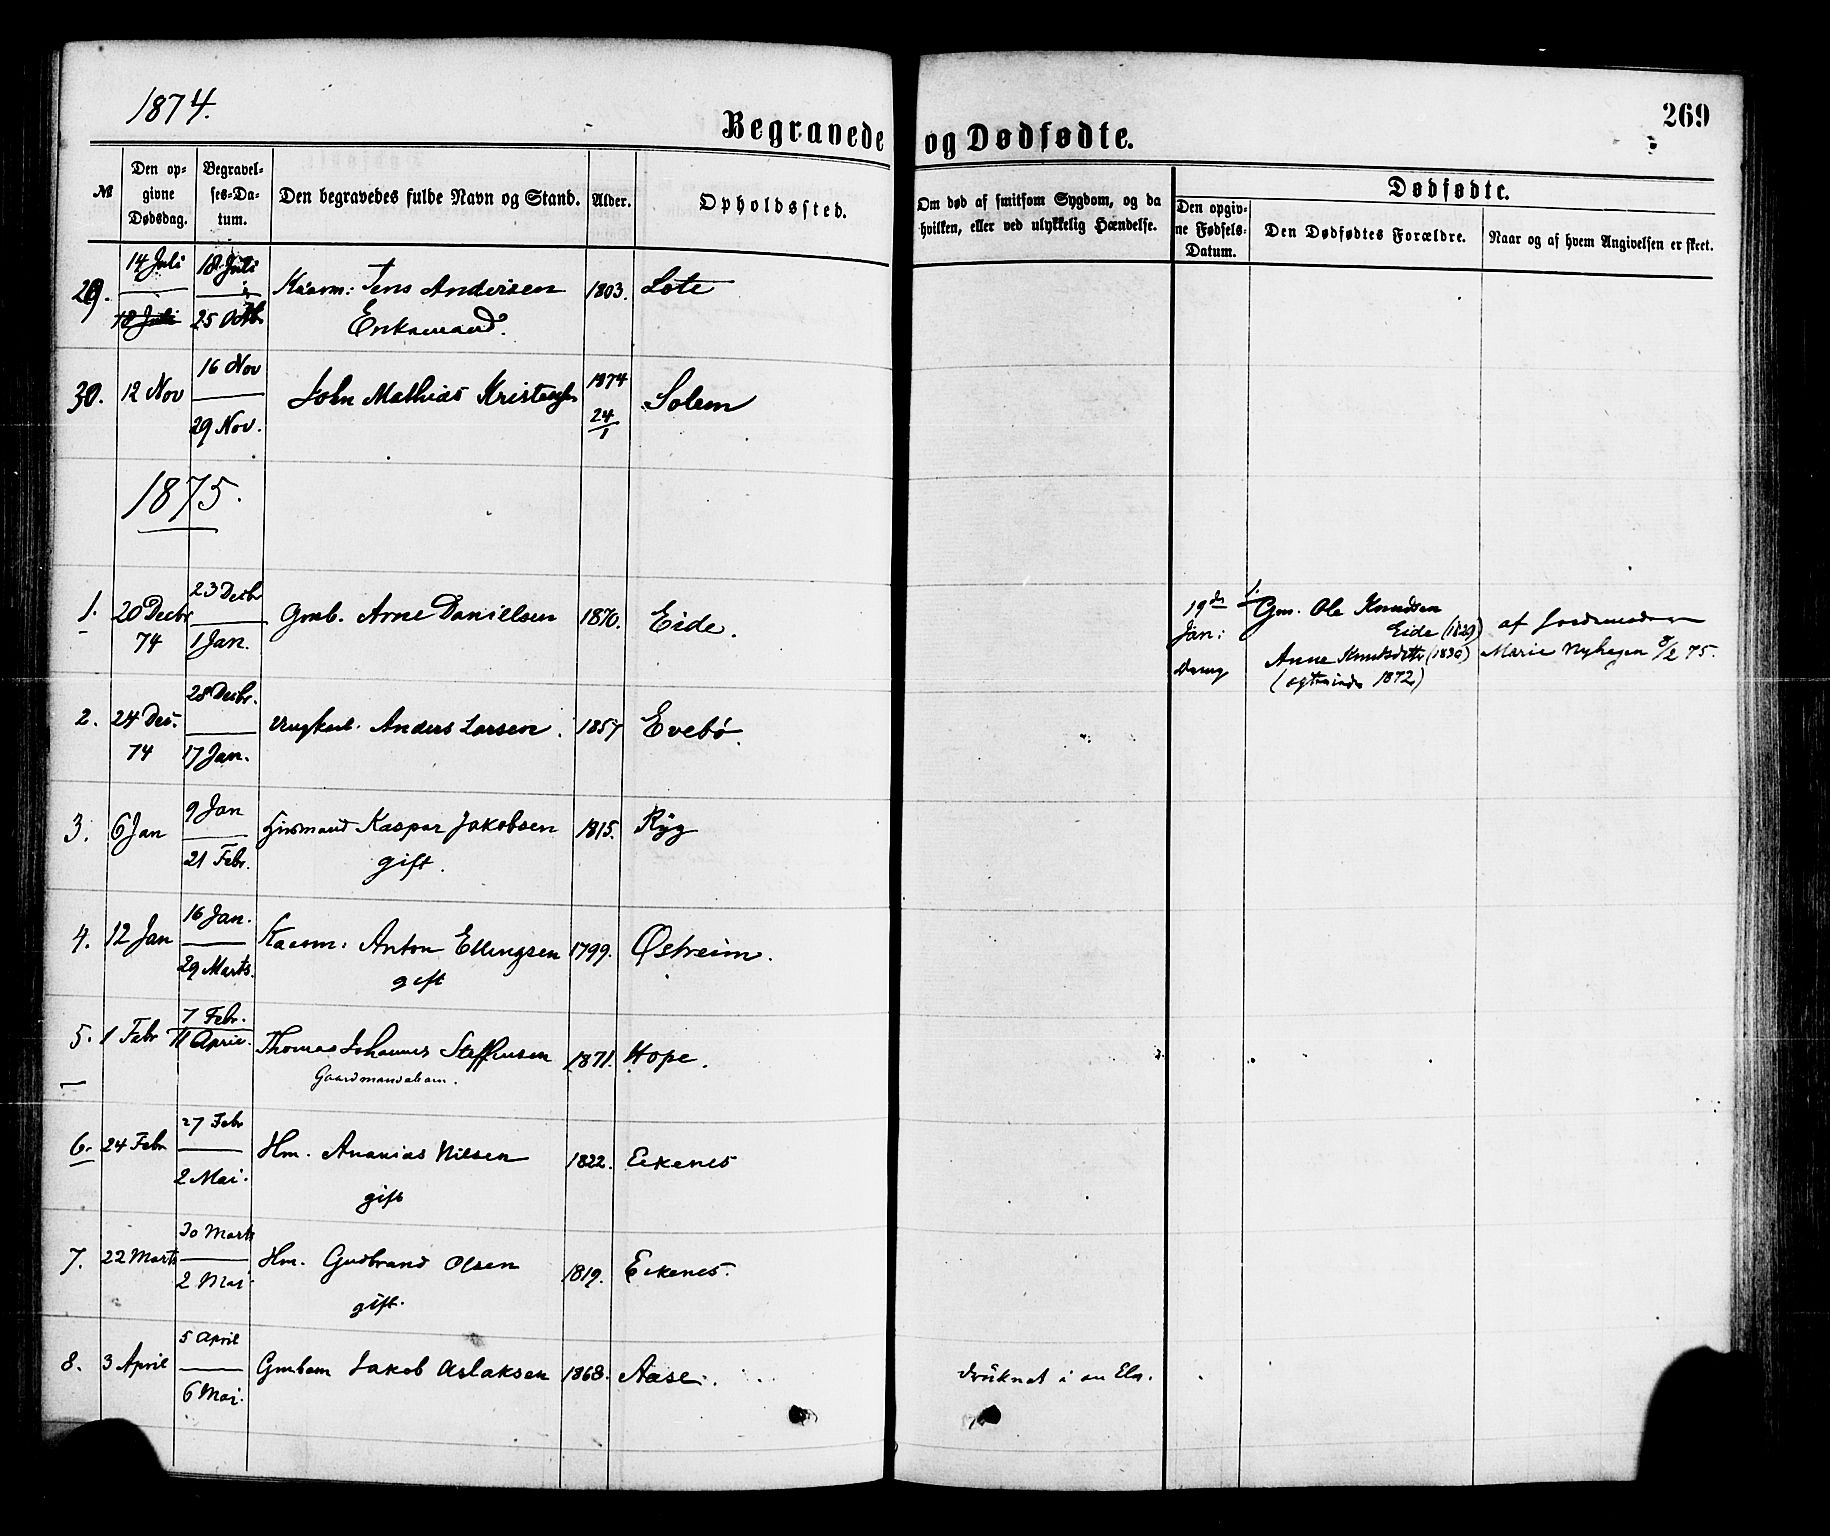 1874.
Begravede og Dødfødte.
269
№
Den op-
givne
Dødsdag.
Begravel-
ses-Da-
tum.
Den begravedes fulde Navn og Stand.
Alder.
Opholdssted.
Om død af smitsom Sygdom, og da
hvilken, eller ved ulykkelig Hændelse.
Dødfødte.
Den opgiv-
ne Fødsels-
Datum.
Den Dødfødtes Forældre.
Naar og af hvem Angivelsen er skeet.
29. 14 Juli 18 Juli Kaarm: Jens Andersen 1803. Lote
18 Juli 25 Octb Enkemand.
30. 12 Nov 16 Nov John Mathias 1874 Solem
29 Nov. 24/1
1875.
1. 20 Decbr 23 Decbr Gmb. Arne Daniellsen 1870. Eide.
74 1 Jan.
19de Jan: 1. Gm. Ole Knudsen
Eide (1829) af
Anne Knudsdtr (1830) Marie Nyhagen 8/2 75.
1872)
2. 24 Dec. 28 Decbr. Ungkarl. Anders Larsen. 1857 Evebø.
74 17 Jan.
3. 6 Jan 9 Jan Huusmand Kaspar Jakobsen 1815. Ryg
21 Febr. gift.
4. 12 Jan 16 Jan. Kaarm: Anton Ellingsen 1799. Østreim.
29 Marts. gift
5. 1 Febr 7 Febr. Thomas Johannes Steffensen 1871. Hope.
11 April. Gaardmandsbarn.
6. 24 Febr 27 Febr Hm. Ananias Nilsen 1822. Eikenes
2 Mai. gift
7. 22 Marts 30 Marts Hm. Gudbrand Olsen 1819. Eikenes.
2 Mai gift.
8. 3 April 5 April Gmbarn Jakob Aslaksen 1868. Aase. Druknet i en Elv.
6 Mai.